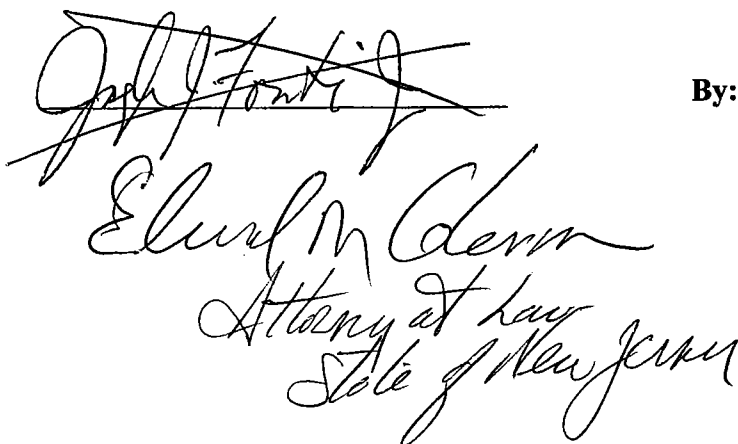 By:
Edward M Coleman
Attorney at Law
State of New Jersey